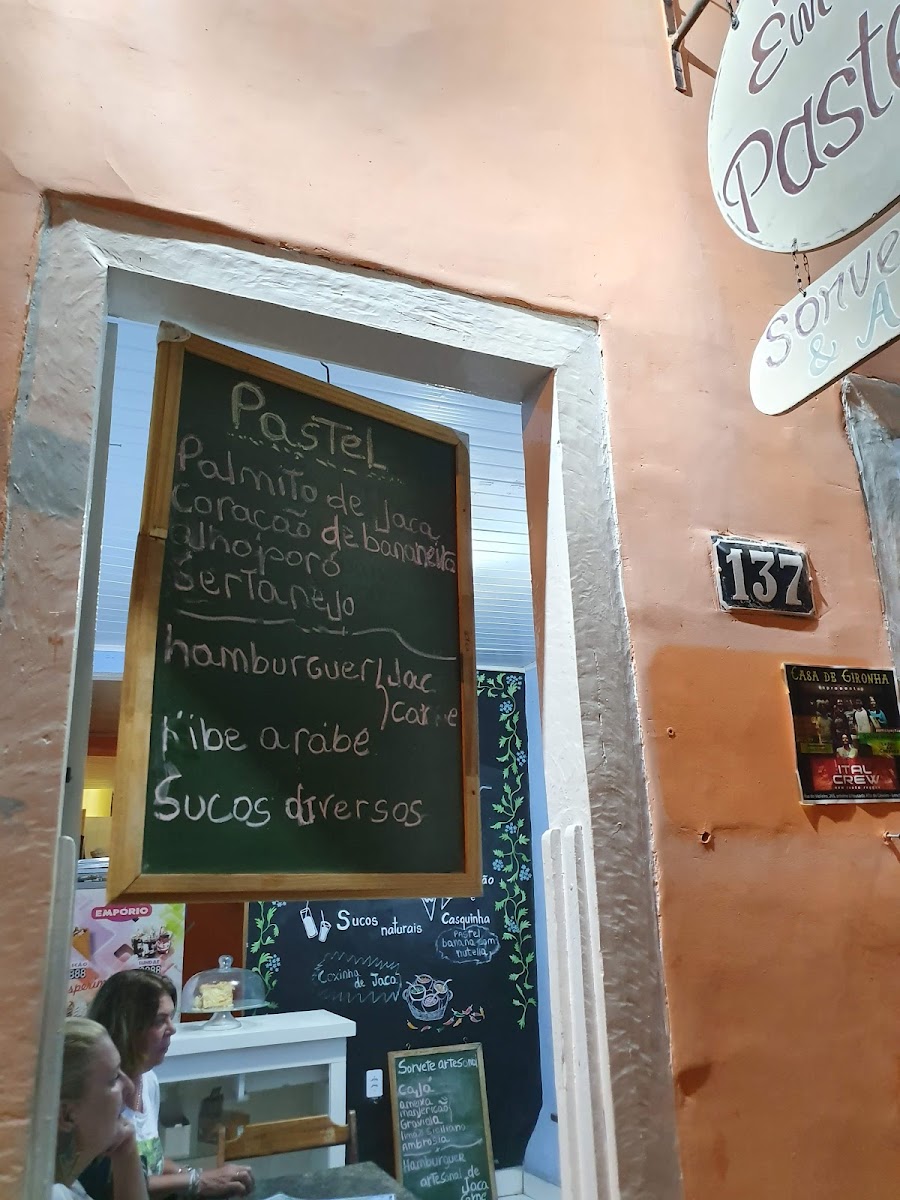 Paste
Sorve
& A
PasTeL
Palmito de Jaca
Coração de bananeira
alho poró
SerTanejo
hamburguer Jac
carne
Kibe arabe
Sucos diversos
137
CASA DE GIRONHA
ITAL
CREW
EMPÓRIO
Sucos
naturais
Casquinha
PASTEL
banana com
nutella
Coxinha
de Jaca
Sorvete artesanal
Cajá
ameixa
manjericão
Graviola
limão siciliano
Ambrosia
Hamburguer
artesanal de
Jaca